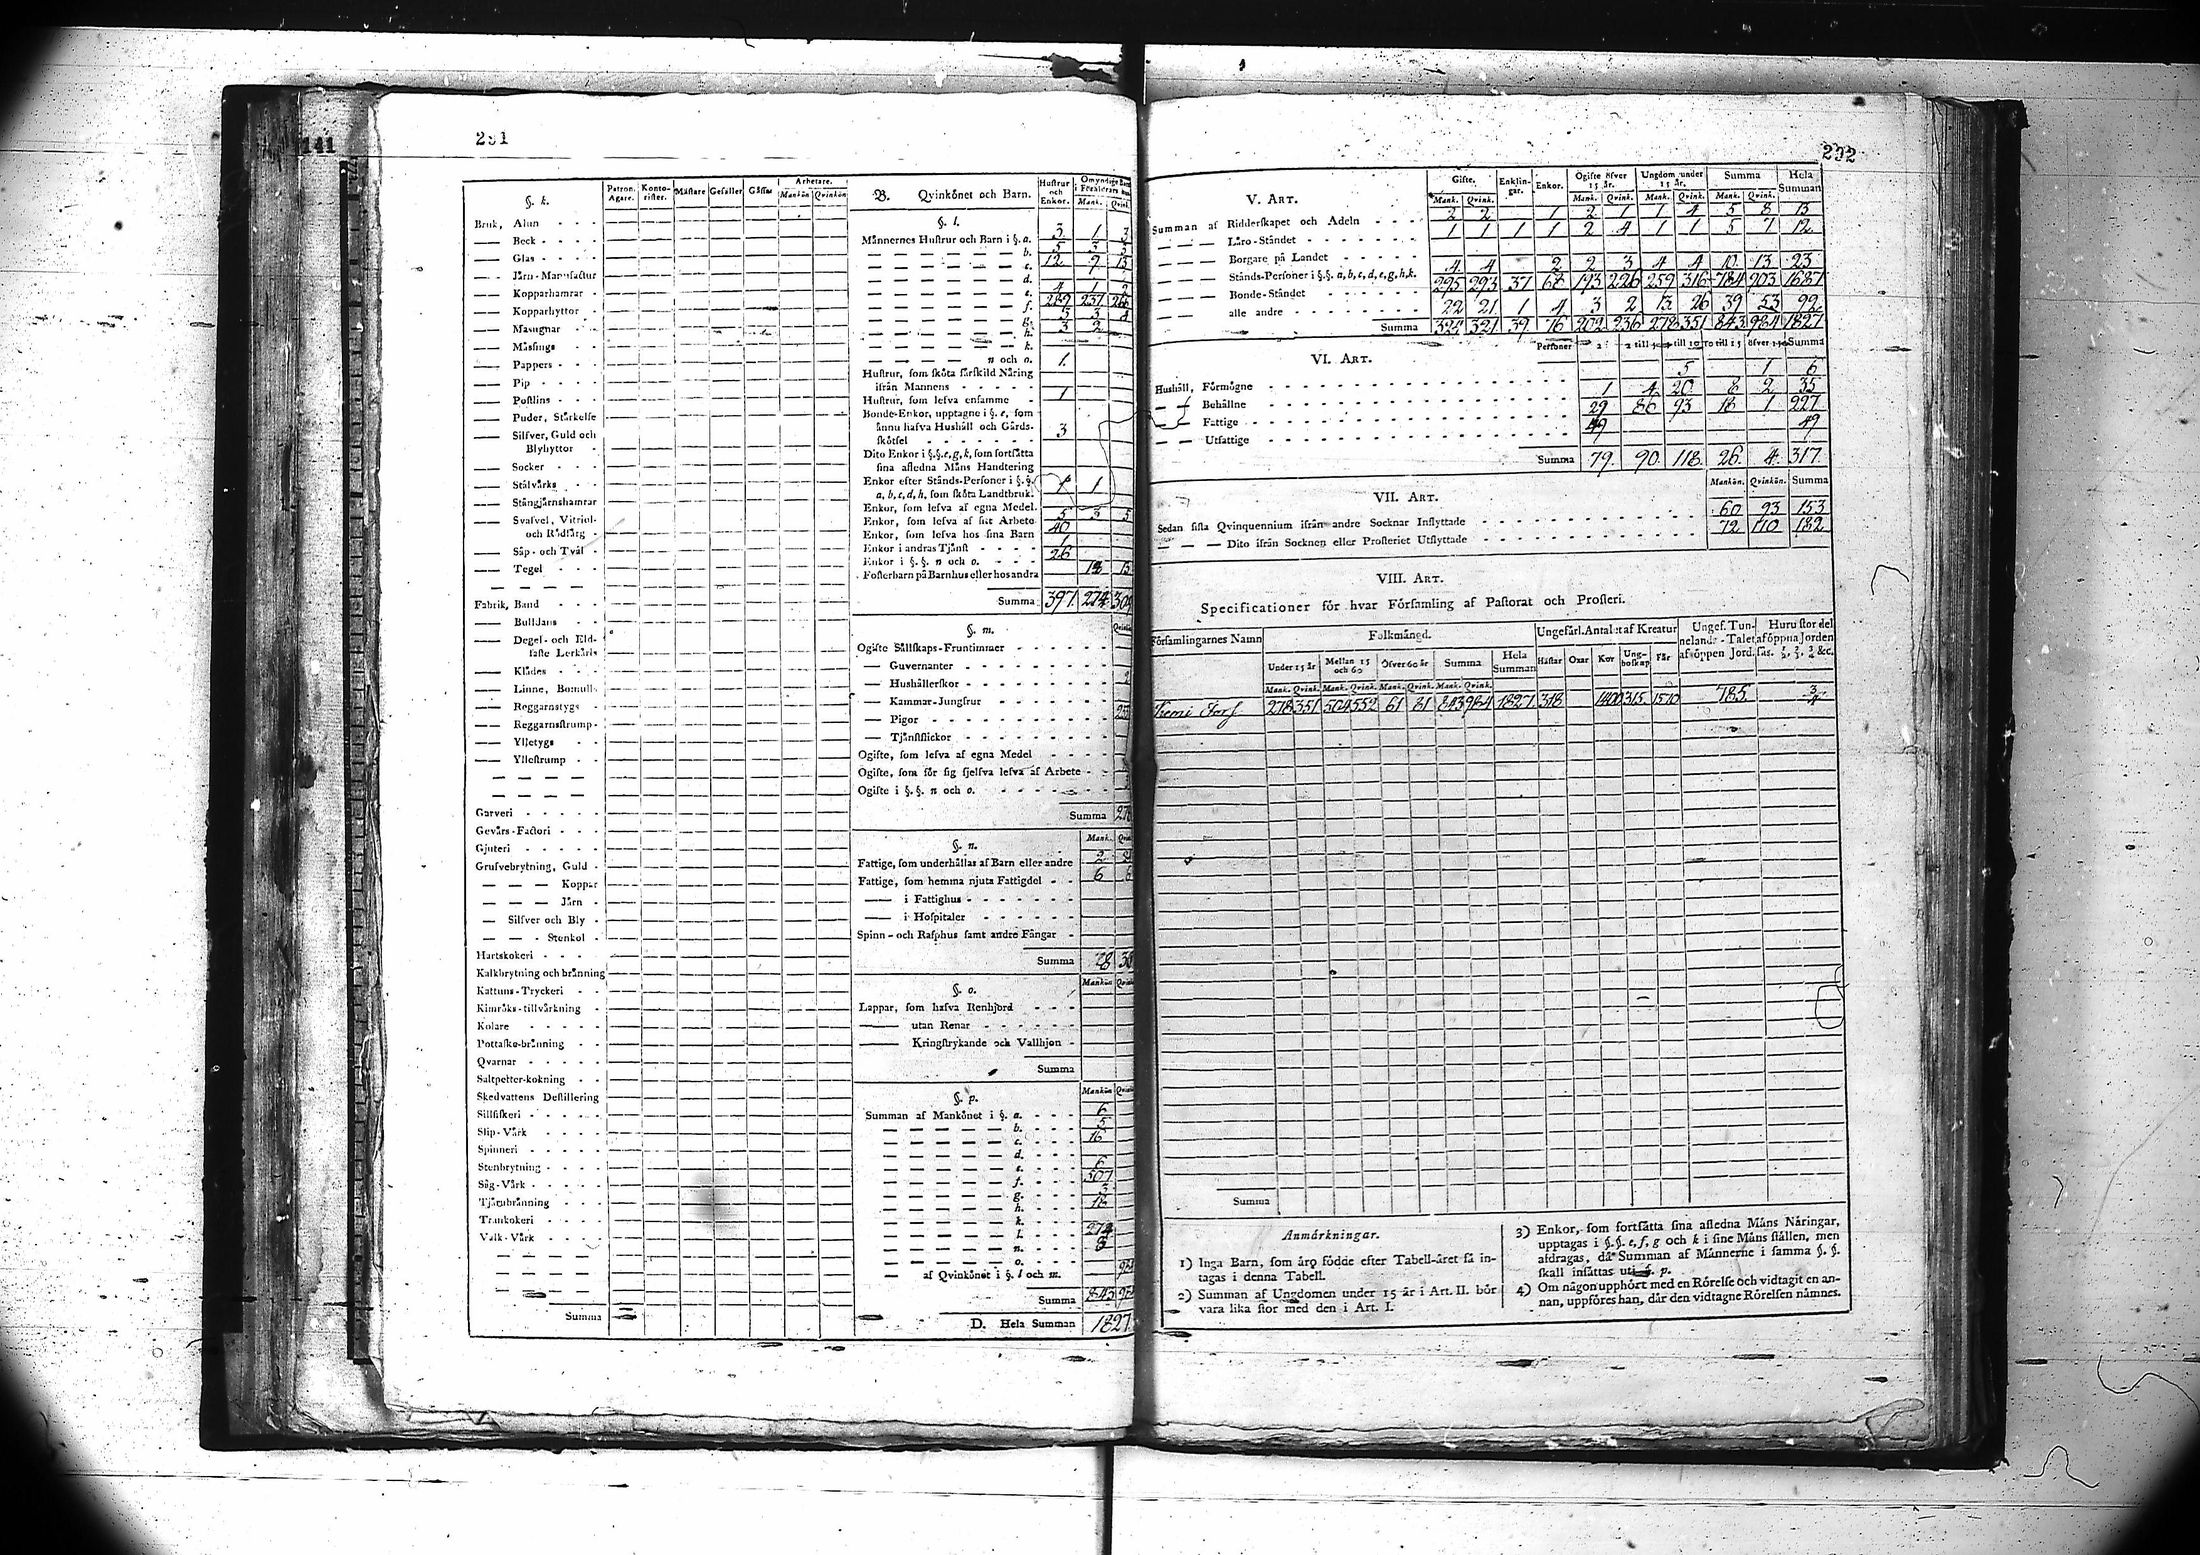 141
291
§. k.
Patron. Ägare.
Konto-rister.
Mästare
Gesäller
Gåssar
Arbetare.
Mankön Qvinkön
Bruk, Alun
Beck
Glas
Järn-Manufactur
Kopparhamrar
Kopparhyttor
Masugnar
Mässings
Pappers
Pip
Postlins
Puder, Stärkelse
Silfver, Guld och
Blyhyttor
Socker
Stålvärks
Stångjärnshamrar
Svafvel, Vitriol-
och Rödfärg
Såp- och Tvål
Tegel
Fabrik, Band
Bulldans
Degel- och Eld-
faste Lerkärls
Klädes
Linne, Bomulls
Reggarnstygs
Reggarnsstrump
Ylletygs
Yllestrump
Garveri
Gevårs-Factori
Gjuteri
Grufvebrytning, Guld
Koppar
Järn
Silfver och Bly
Stenkol
Hartskokeri
Kalkbrytning och bränning
Kattuns-Tryckeri
Kimröks-tillvärkning
Kolare
Pottaske-bränning
Qvarnar
Saltpetter-kokning
Skedvattens Destillering
Sillfiskeri
Slip-Värk
Spinneri
Stenbrytning
Såg-Värk
Tjärubränning
Trankokeri
Valk-Värk
Summa
B. Qvinkönet och Barn.
Hustrur och Enkor.
Mank. Qvink.
§. l.
Männernes Hustrur och Barn i §. a. 3. 1 3
b. 5 3 3
c. 12. 9 13
d.
e. 4 1 2
f. 289 237 266
g. 5 3 4
h. 3 2
k.
n och o. 1.
Hustrur, som sköta särskild Näring
ifrån Mannens
Hustrur, som lefva ensamme 1
Bonde-Enkor, upptagne i §. e, som
ännu hafva Hushåll och Gårds-
skötsel 3
Dito Enkor i §.§. e, g, k, som fortsätta
sina afledna Mäns Handtering
Enkor efter Stånds-Personer i §.§.
a, b, c, d, h, som sköta Landtbruk. 1 1
Enkor, som lefva af egna Medel.
Enkor, som lefva af sitt Arbete 5 3 5
Enkor, som lefva hos sina Barn 40
Enkor i andras Tjänst 1
Enkor i §.§. n och o. 26
Fosterbarn på Barnhus eller hos andra 18 13
Summa 397. 274.
§. m.
Ogifte Sällskaps-Fruntimmer
Guvernanter
Hushållerskor 2
Kammar-Jungfrur
Pigor
Tjänstflickor
Ogifte, som lefva af egna Medel
Ogifte, som för sig sjelfva lefva af Arbete
Ogifte i §.§. n och o.
Summa
Mank.
§. n.
Fattige, som underhållas af Barn eller andre 2
Fattige, som hemma njuta Fattigdel 6
i Fattighus
i Hospitaler
Spinn- och Rasphus samt andre Fångar
Summa
Mankön
§. o.
Lappar, som hafva Renhjord
utan Renar
Kringstrykande och Vallhjon
Summa
Mankön
§. p.
Summan af Mankönet i §. a. 6
b. 5
c. 16
d.
e. 6
f. 507
g. 3
h. 18
k.
l. 274
n. 8
o.
af Qvinkönet i §. l och m.
Summa 843
D. Hela Summan 1827.
292
V. Art.
Gifte.
Enklin-gar.
Enkor.
Ogifte öfver 15 år.
Ungdom under 15 år.
Summa
Hela Summan
Mank. Qvink. Mank. Qvink. Mank. Qvink. Mank. Qvink.
Summan af Ridderskapet och Adeln 2 2 1 2 1 1 4 5 8 13
Läro-Ståndet 1 1 1 1 2 4 1 1 5 7 12
Borgare på Landet
Stånds-Personer i §.§. a, b, c, d, e, g, h, k. 4 4 2 2 3 4 4 10 13 23
Bonde-Ståndet 295 293 37 68 193 226 259 316 784 903 1687
alle andre 22 21 1 4 3 2 13 26 39 53 92
Summa 324 321 39 76 202 236 278 351 843 984 1827
VI. Art.
Personer
Summa
Hushåll, Förmögne 5 1 6
Behållne 1 4 20 8 2 35
Fattige 29 86 93 18 1 227
Utfattige 49 49
Summa 79. 90. 118. 26. 4. 317.
VII. Art.
Mankön. Qvinkön. Summa
Sedan sista Qvinquennium ifrån andre Socknar Inflyttade 60 93 153
Dito ifrån Socknen eller Prosteriet Utflyttade 72 110 182
VIII. Art.
Specificationer för hvar Församling af Pastorat och Prosteri.
Församlingarnes Namn
Folkmängd.
Ungefärl. Antalet af Kreatur
Ungef. Tun-nelands-Talet af öppen Jord.
Huru stor del af öppna Jorden sås. ½, ⅔, ¾ &c.
Under 15 år
Mellan 15 och 60
Öfver 60 år
Summa
Hela Summan
Hästar
Oxar
Kor
Ung-boskap
Får
Mank. Qvink. Mank. Qvink. Mank. Qvink. Mank. Qvink.
278 351 504 552 61 81 843 984 1827 318 1400 315 1510 785 3/4
Summa
Anmärkningar.
1) Inga Barn, som äro födde efter Tabell-året få in-
tagas i denna Tabell.
2) Summan af Ungdomen under 15 år i Art. II. bör
vara lika stor med den i Art. I.
3) Enkor, som fortsätta sina afledna Mäns Näringar,
upptagas i §.§. e, f, g och k i sine Mäns ställen, men
afdragas, då Summan af Männerne i samma §.§.
skall insättas uti §. p.
4) Om någon upphört med en Rörelse och vidtagit en an-
nan, uppföres han, där den vidtagne Rörelsen nämnes.